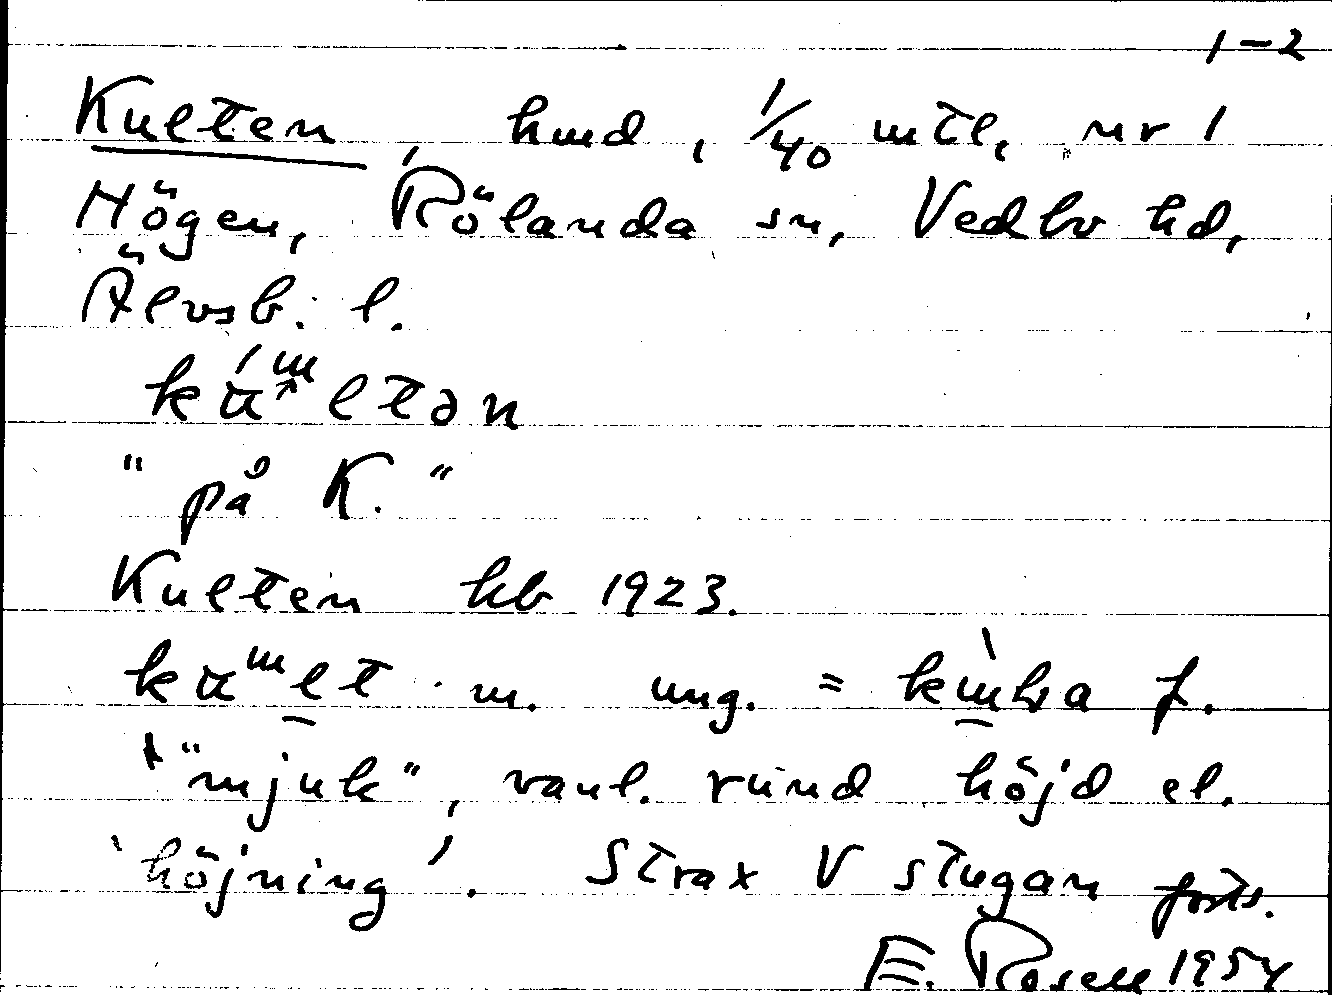 1-2
Kulten, hmd, 1/40 mtl, nr 1
Högen, Rölanda sn, Vedbo hd,
Älvsb. l.
"på K."
Kulten kb 1923.
m. ung. = f.
'"mjuk", vanl. rund höjd el.
höjning'. Strax V stugan forts.
E. Rosell 1954